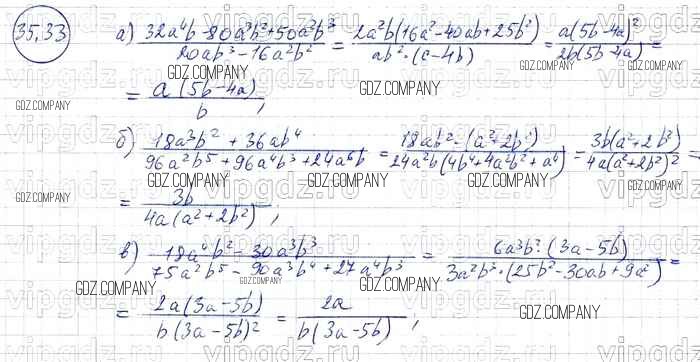 35.33
а) (32a⁴b - 80a³b² + 50a²b³)/(20ab³ - 16a²b²) = (2a²b(16a² - 40ab + 25b²))/(ab²·( -4b)) = (a(5b-4a)²)/(2b(5b-4a)) =
= (a(5b-4a))/b ;
б) (18a³b² + 36ab⁴)/(96a²b⁵ + 96a⁴b³ + 24a⁶b) = (18ab²·(a²+2b²))/(24a²b(4b⁴+4a²b²+a⁴)) = (3b(a²+2b²))/(4a(a²+2b²)²) =
= 3b/(4a(a²+2b²)) ;
в) (18a⁴b² - 30a³b³)/(75a²b⁵ - 90a³b⁴ + 27a⁴b³) = (6a³b²·(3a-5b))/(3a²b³·(25b²-30ab+9a²)) =
= (2a(3a-5b))/(b(3a-5b)²) = 2a/(b(3a-5b)) ;
GDZ.COMPANY
vipgdz.ru